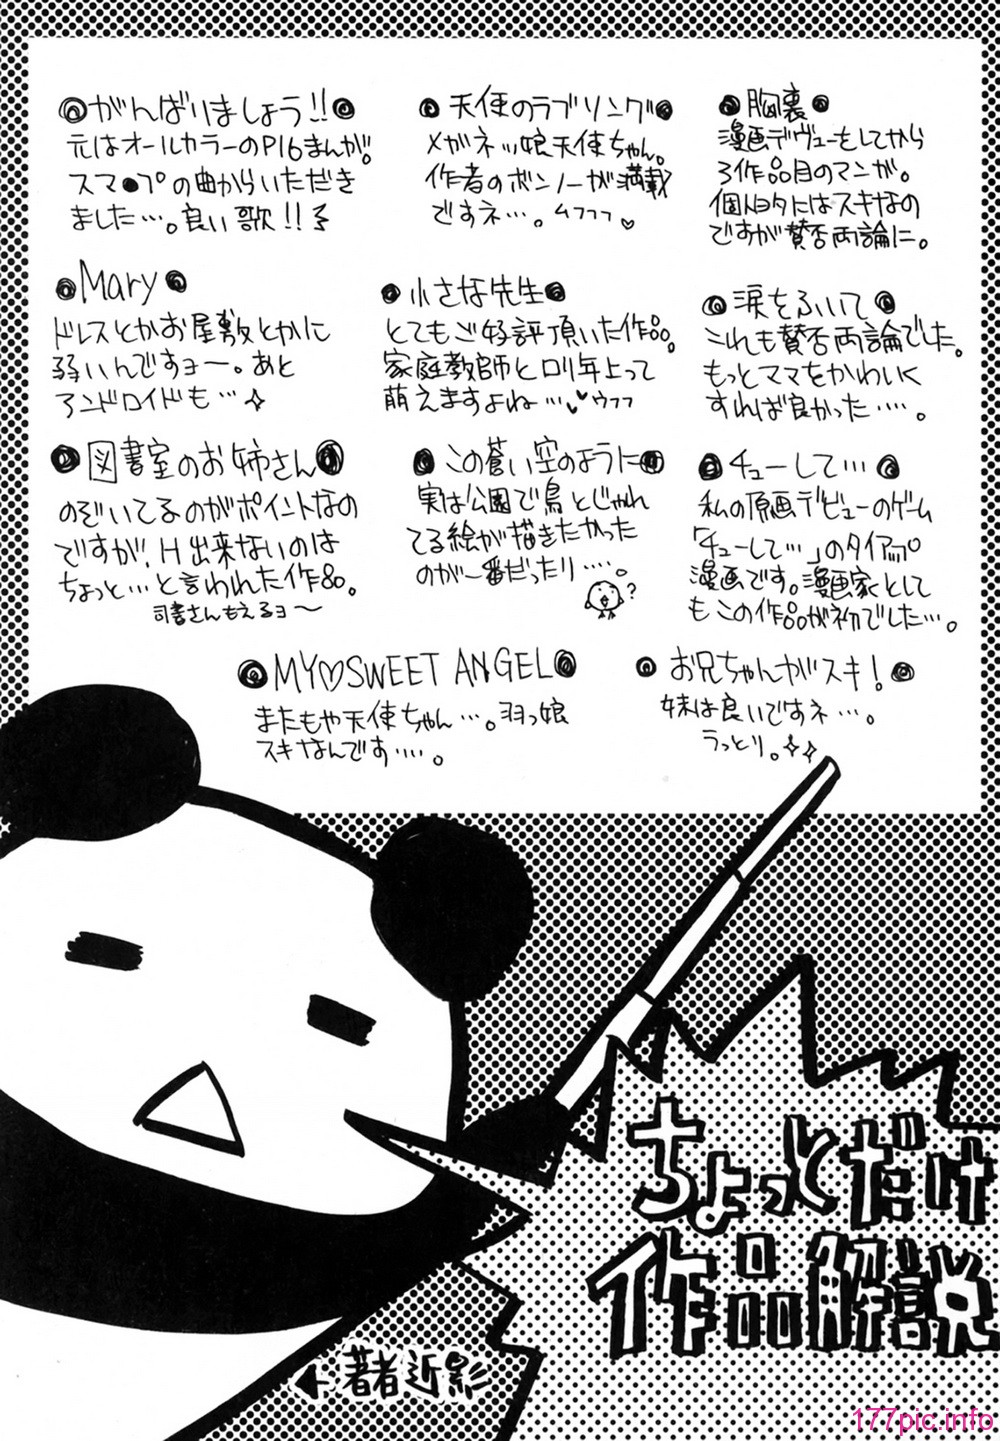 ◎がんばりましょう!!◎
元はオールカラーのP16まんが。
スマ●プの曲からいただき
ました…。良い歌!!
●天使のラブソング●
メガネッ娘天使ちゃん。
作者のボンノーが満載
ですネ…。ムフフフ♡
●胸裏●
漫画デヴューをしてから
3作品目のマンガ。
個人的にはスキなの
ですが賛否両論に。
◎Mary◎
ドレスとかお屋敷とかに
弱いんですヨー。あと
アンドロイドも…✧
●小さな先生●
とてもご好評頂いた作品。
家庭教師とロリ年上って
萌えますよね…♥ウフフ
◎涙をふいて◎
これも賛否両論でした。
もっとママをかわいく
すれば良かった……。
◎図書室のお姉さん◎
のぞいてるのがポイントなの
ですが、H出来ないのは
ちょっと…と言われた作品。
司書さんもえるヨ〜
◎この蒼い空のように◎
実は公園で鳥とじゃれ
てる絵が描きたかった
のが一番だったり……。
?
◎チューして…◎
私の原画デビューのゲーム
「チューして…」のタイアップ
漫画です。漫画家として
もこの作品が初でした…。
◎MY♡SWEET ANGEL◎
またもや天使ちゃん…。羽っ娘
スキなんです……。
◎お兄ちゃんがスキ!◎
妹は良いですネ…。
うっとり。✧✧
ちょっとだけ
作品解説
←著者近影
177pic.info